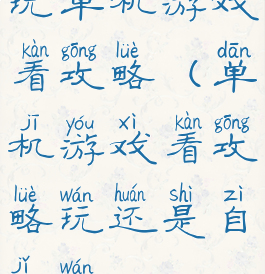 玩单机游戏
kàn gōng lüè dān
看攻略（单
jī yóu xì kàn gōng
机游戏看攻
lüè wán huán shì zì
略玩还是自
jǐ wán